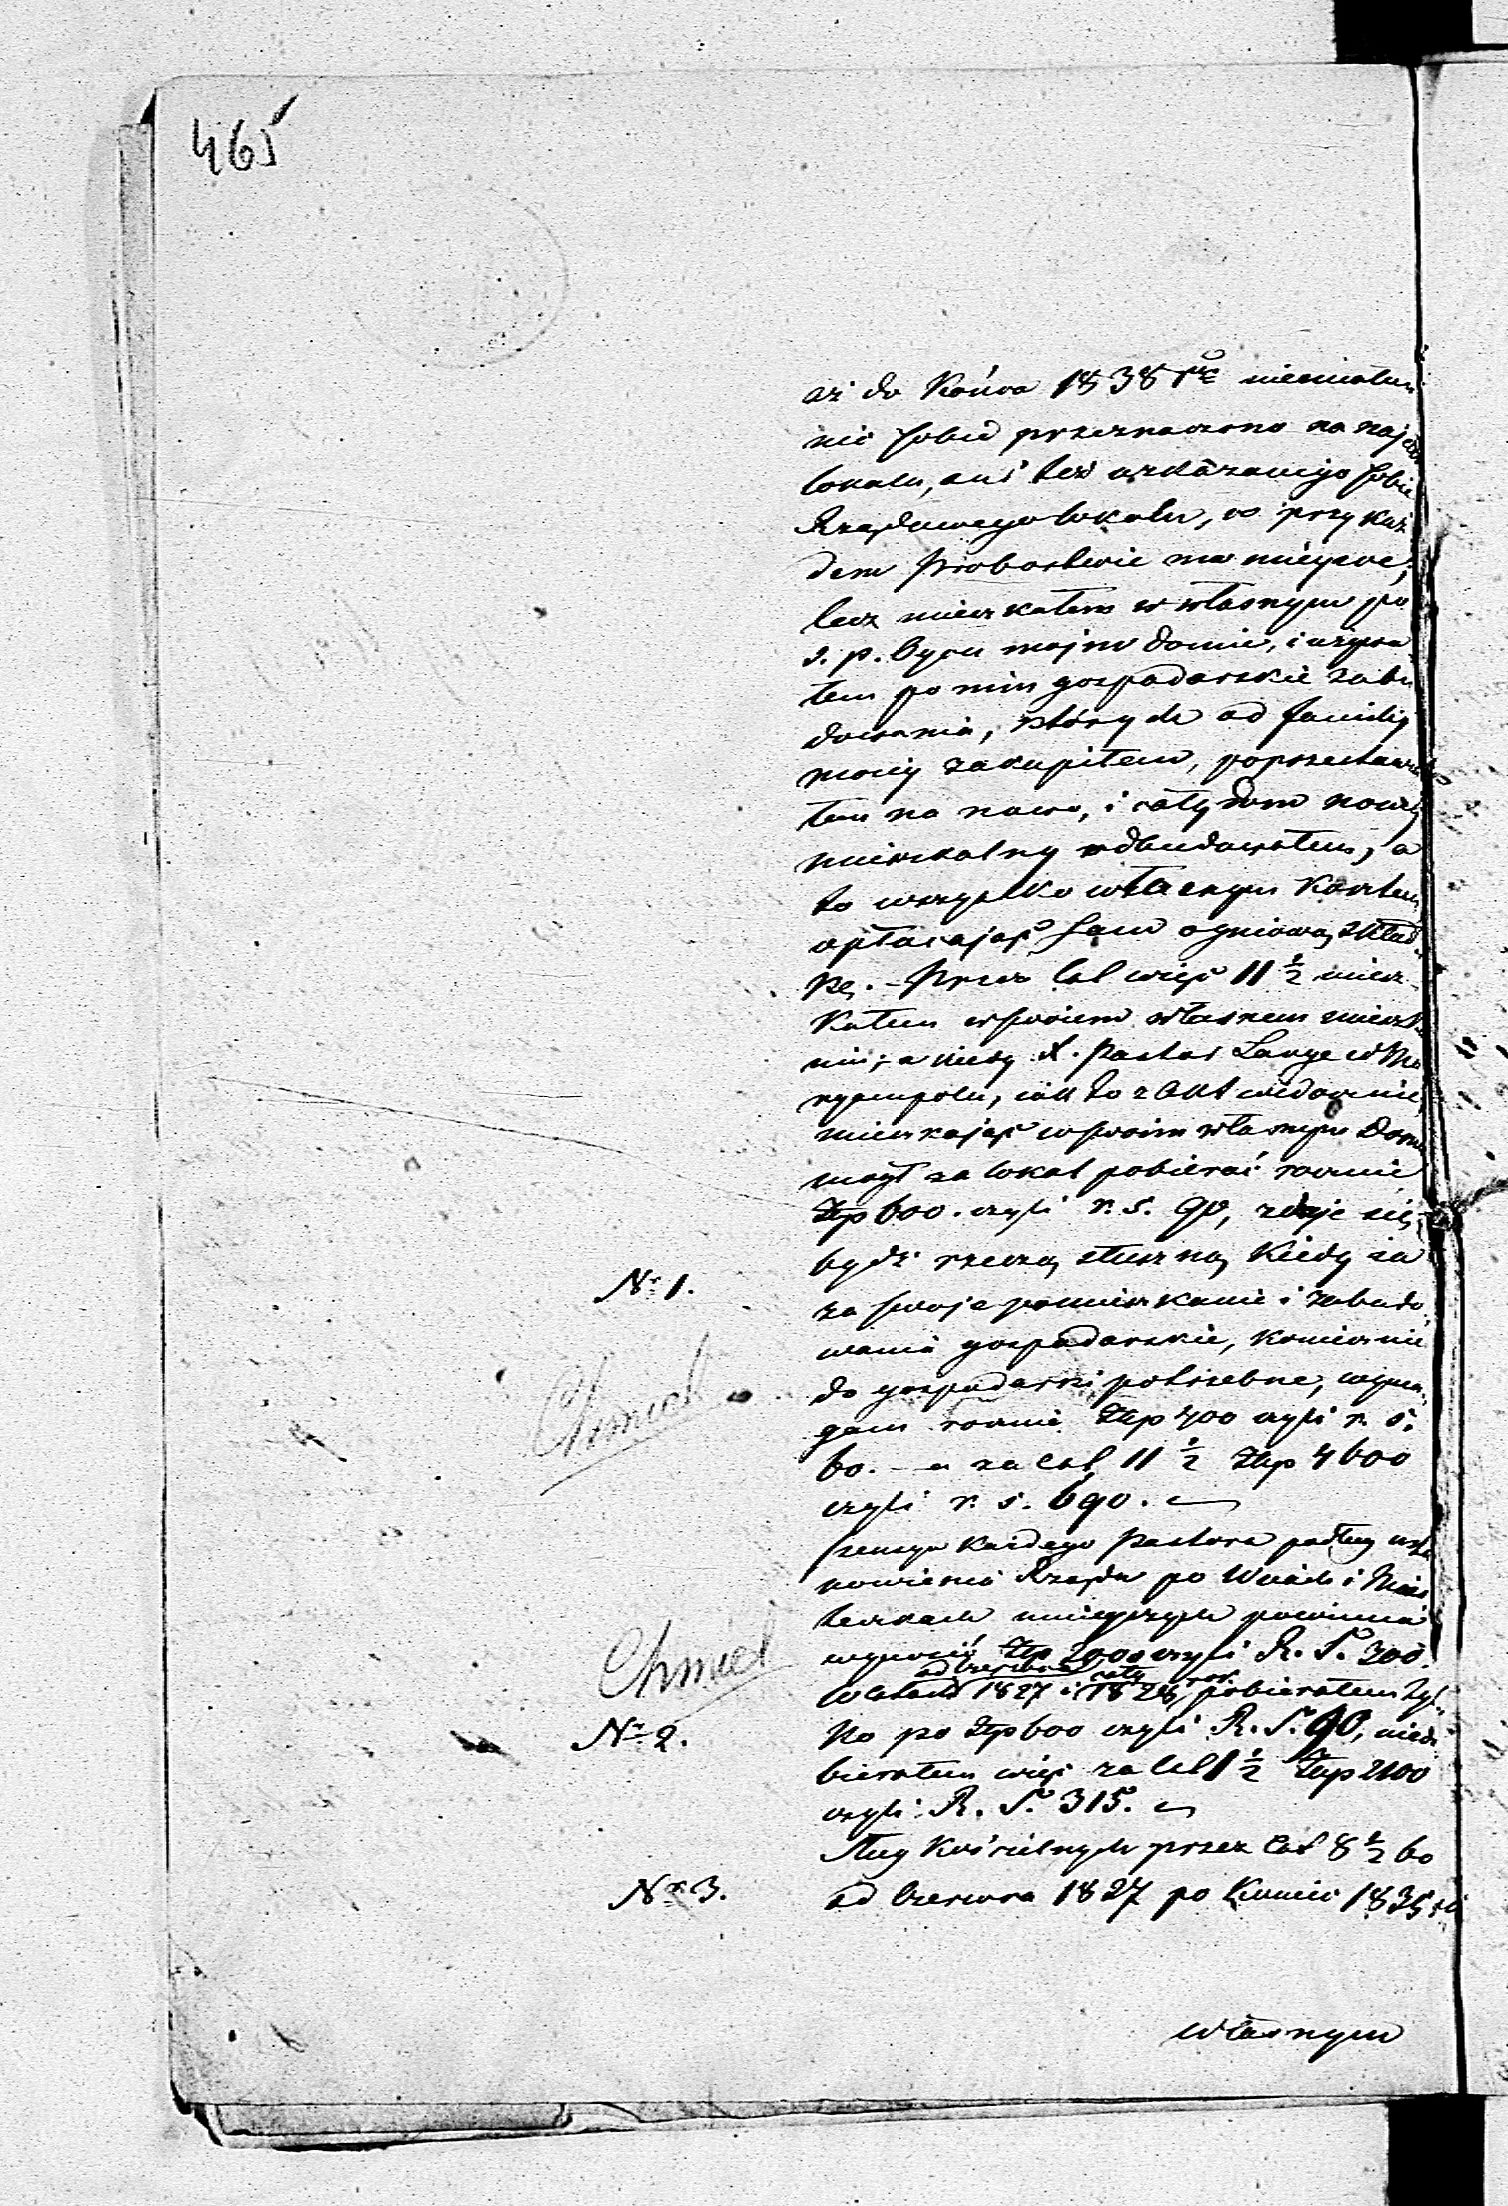 465
aż do Końca 1838 r. nie miałem
nic sobie przeznaczono na najem
lokalu, ani też wskazanego sobie
Rządowego lokalu, co przy każ
dem Probostwie ma miejsce,
lecz mieszkałem w własnym po
ś. p. Oycu mojm domie, i
łem po nim gospodarskie zabu
dowania, których od familij
mojij zakupiłem, poprzestawia
łem na nowo, i cały dom nowy
mieszkalny odbudowałem, a
to wszystko własnym kosztem
opłacając sam ogniową skład
kę. – Przez lat więc 11 ½ miesz
kałem w swoiem własnem mieszka
niu, a kiedy X. Pastor Lange w Ma
ryampolu, iak to z Akt widocznie,
mieszkając w swoim własnym domu
mógł za lokal pobierać rocznie
Złp 600. czyli r. s. 90, zdaje się
bydź rzeczą słuszną kiedy ia
Nr 1.
za swoje pomieszkanie i zabudo
wania gospodarskie, koniecznie
do gospodarki potrzebne, wyma
Chmiel
gam rocznie Złp 400 czyli r. s.
60. – a za lat 11 ½ Złp 4600
czyli r. s. 690. –
Pensya każdego Pastora podług usta
nowienia Rządu po Wsiach i Mias
teczkach mniejszych powinna
wynosić Złp 2000 czyli R. S. 300.
od Czerwca cały rok
Chmiel
w latach 1827 i 1828 pobierałem tyl
Nr 2.
ko po Złp 600 czyli R. S. 90, niedo
bierałem więc za lat 1 ½ Złp 2100
czyli R. S. 315. –
Sług Kościelnych przez lat 8 ½ bo
Nr 3.
od Czerwca 1827 po koniec 1835
własnym